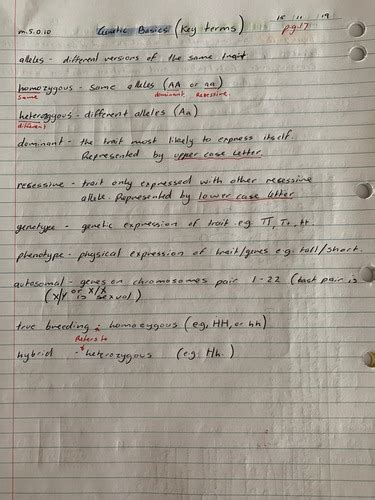 15 / 11 / 19
m.5.0.10 Genetic Basics (Key terms) pg.17
alleles - different versions of the same trait
homozygous - same alleles (AA or aa)
same dominant Recessive.
heterozygous - different alleles (Aa)
different
dominant - the trait most likely to express itself.
Represented by upper case letter.
recessive - trait only expressed with other recessive
allele. Represented by lower case letter
genotype - genetic expression of trait eg TT, Tt, tt.
phenotype - physical expression of trait/genes e.g. tall/short.
autosomal - genes on chromosomes pair 1-22 (last pair is
(X/Y or X/X is sexual)
true breeding : homozygous (eg, HH, or hh)
Refers to
hybrid - heterozygous (e.g. Hh.)